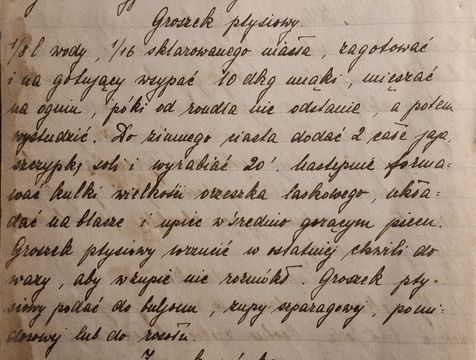 Groszek ptysiowy.
1/8 l wody 1/16 sklarowanego masła, zagotować
i na gotujący wsypać 10 dkg mąki, mieszać
na ogniu, póki od rondla nie odstanie, a potem
wystudzić. Do zimnego ciasta dodać 2 całe jaja,
szczyptę soli i wyrabiać 20'. Następnie formo-
wać kulki wielkości orzeszka laskowego, ukła-
dać na blasze i upiec w średnio gorącym piecu.
Groszek ptysiowy wrzucić w ostatniej chwili do
wazy, aby w zupie nie rozmókł. Groszek pty-
siowy podać do buljonu, zupy szparagowej, pomi-
dorowej lub do rosołu.